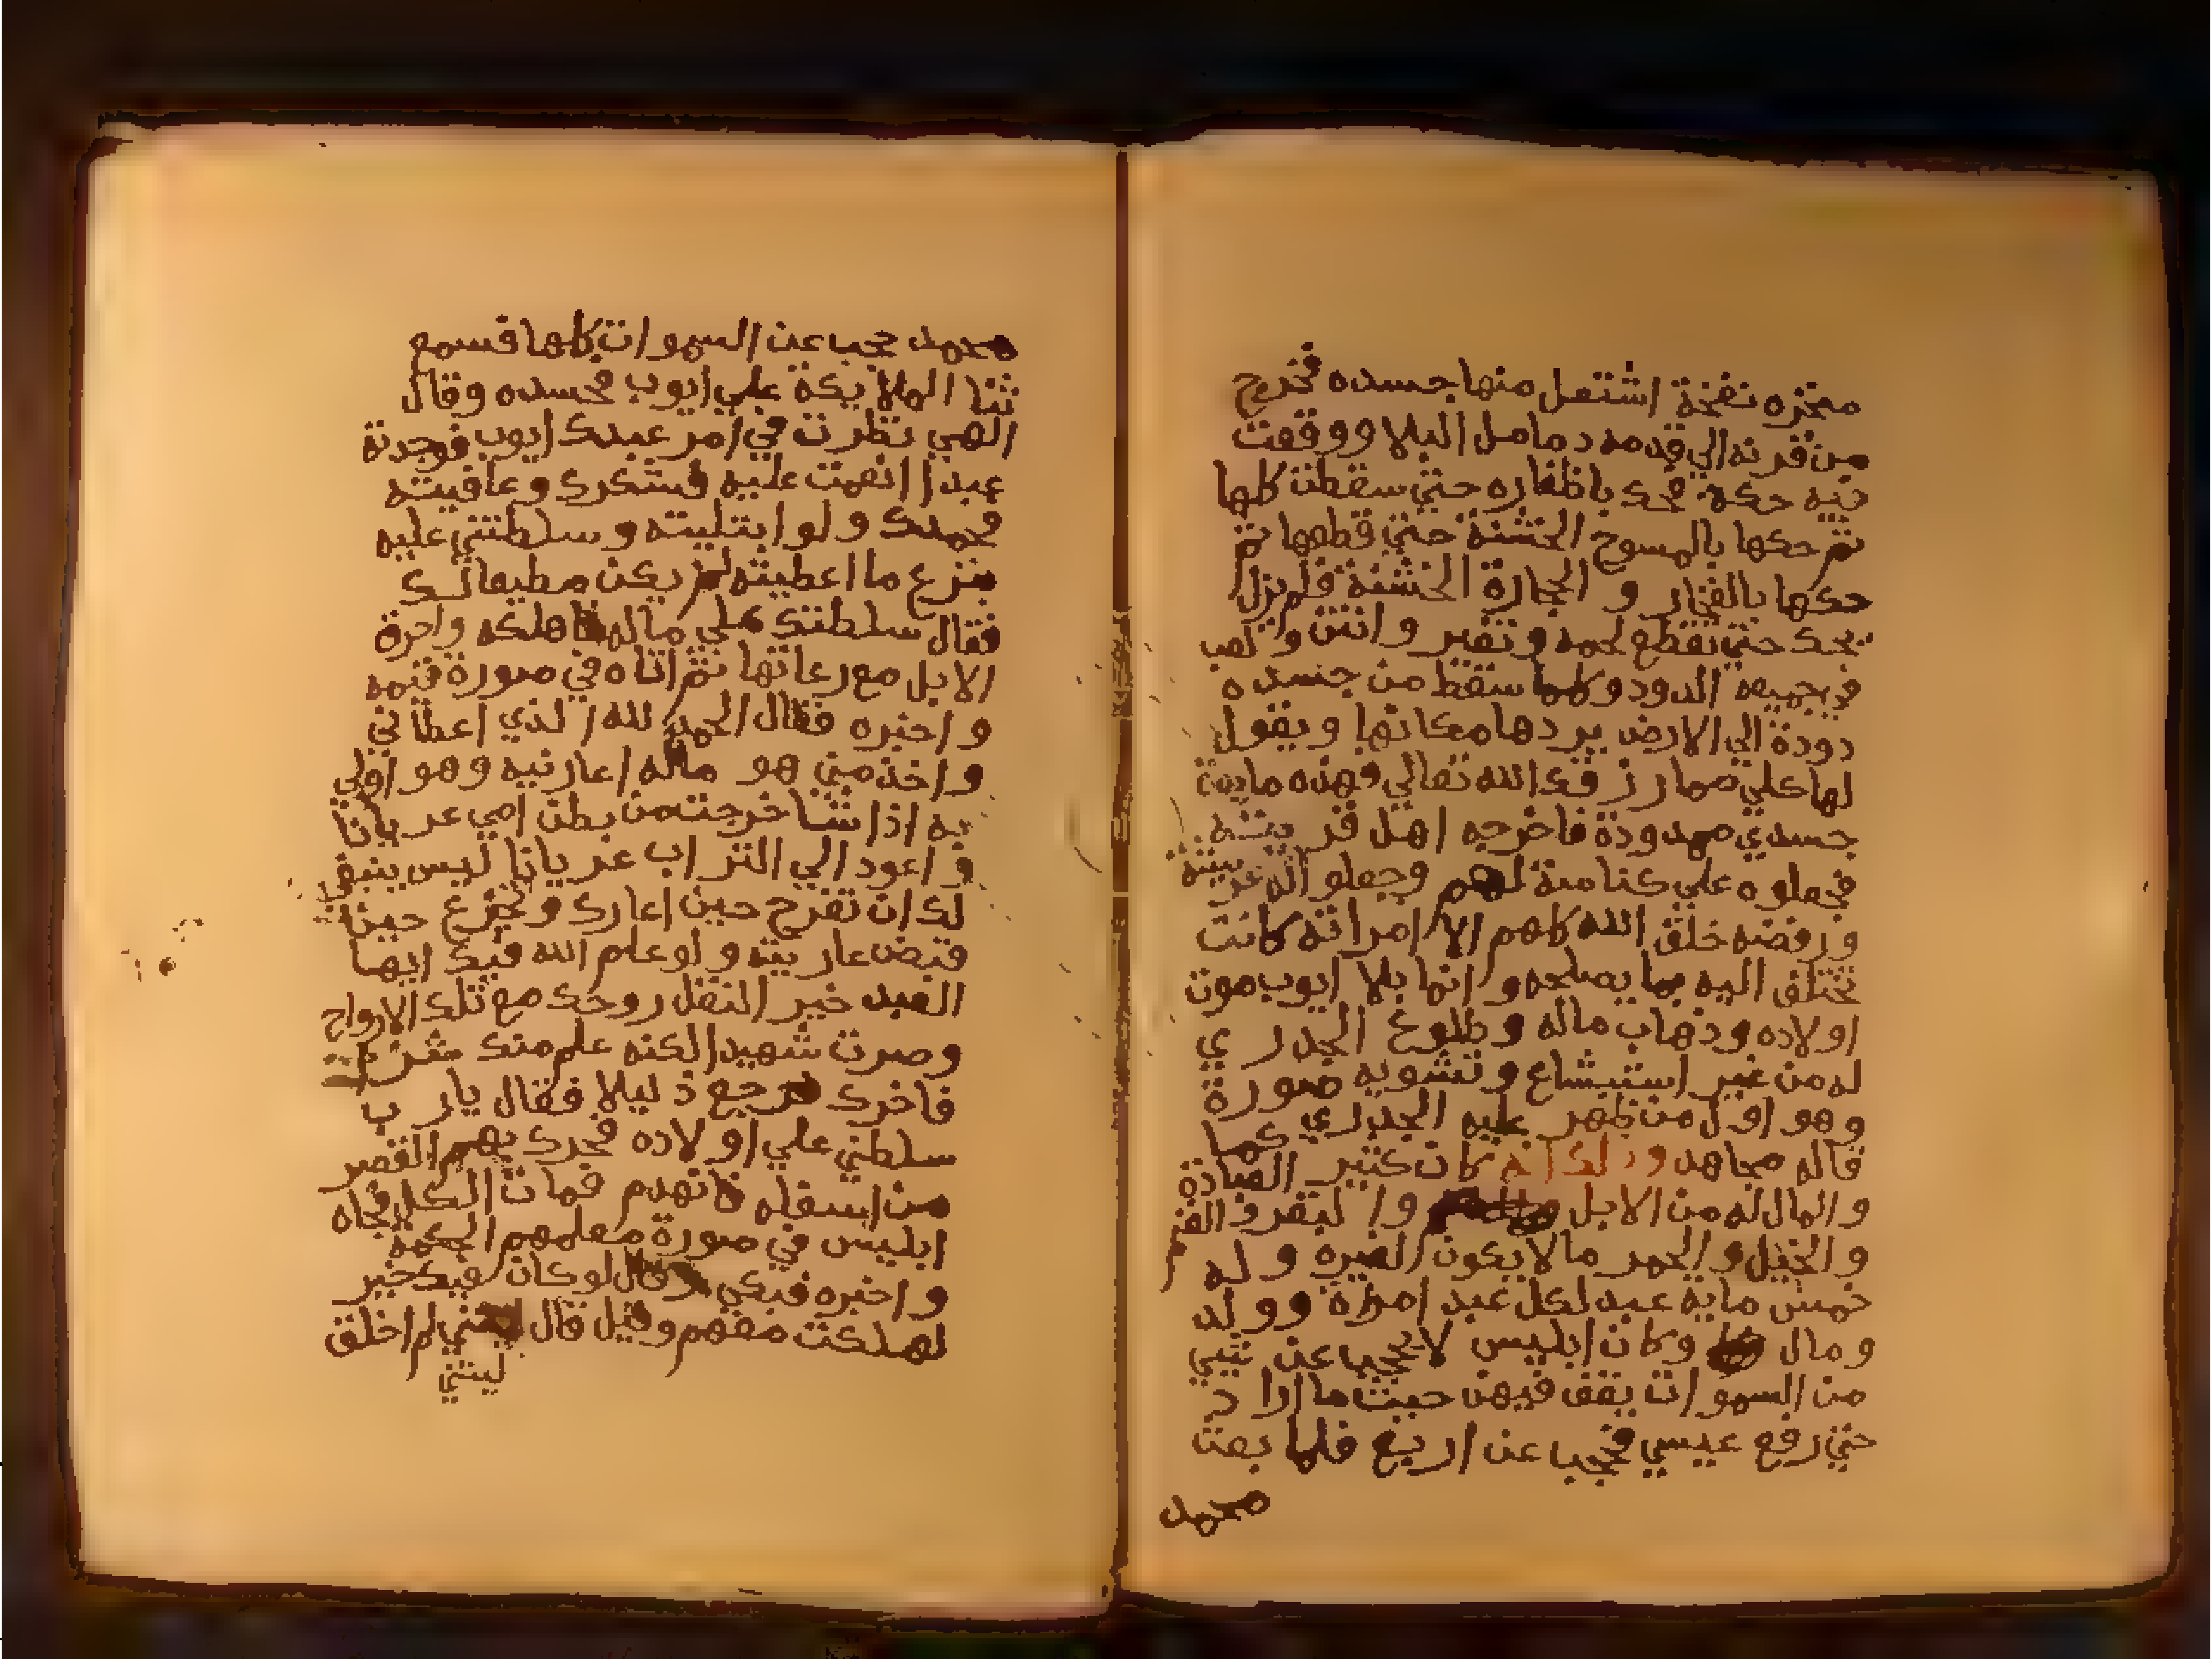 منخره نفخة اشتعل منها جسده فخرج
من قرنه الي قدمه دمامل البلا ووقعت
فيه حكة فحك باظفاره حتي سقطت كلها
ثم حكها بالمسوح الخشنة حتي قطعها ثم
حكها بالفخار و الحجارة الخشنة فلم يزل
يحك حتي تقطع لحمه و تغير وانتن و لعب
في جميعه الدود وكلما سقط من جسده
دودة الي الارض يردها مكانها ويقول
لها كلي مما رزقك الله تعالي فهذه مايدة
جسدي ممدودة فاخرجه اهل قريته
فجعلوه علي كناسة لهم وجعلو اله عريشة
ورفضه خلق الله كلهم الا امراته كانت
تختلف اليه بما يصلحه و انما بلا ايوب موت
اولاده وذهاب ماله وطلوع الجدري
له من غير استبشاع وتشويه صورة
وهو اول من ظهر عليه الجدري كما
قاله مجاهد و ذلك انه كان كثير العبادة
والمال له من الابل والبقر و الغنم
و الخيل و الحمر ما لا يكون لغيره وله
خمس ماية عبد لكل عبد امراة وولد
ومال وكان ابليس لا يحجب عن شيي
من السموات يقف فيهن حيث ما اراد
حتي رفع عيسي فحجب عن اربع فلما بعث
محمد
محمد حجب عن السموات كلها فسمع
ثنا الملايكة علي ايوب فحسده وقال
الهي نظرت في امر عبدك ايوب فوجدته
عبدا انعمت عليه فشكرك وعافيته
فحمدك ولو ابتليته وسلطتني عليه
بنزع ما اعطيته لم يكن مطيعا لك
فقال سلطتك علي ماله فاهلكه واحرق
الابل مع رعاتها ثم اتاه في صورة قيمه
واخبره فقال الحمد لله الذي اعطاني
واخذ مني هو ماله اعارنيه وهو اولي
به اذا شا خرجت من بطن امي عريانا
و اعود الي التراب عريانا ليس ينبغي
لك ان تفرح حين اعارك وتجزع حين
قبض عاريته ولو علم الله فيك ايها
العبد خير النقل روحك مع تلك الارواح
وصرت شهيدا لكنه علم منك شرا
فاخرك فرجع ذليلا فقال يارب
سلطني علي اولاده فحرك بهم القصر
من اسفله فانهدم فمات الكل فجاه
ابليس في صورة معلمهم الحكمة
واخبره فبكي وقال لو كان فيك خير
لهلكت معهم وقيل قال لم اخلق
ليتني